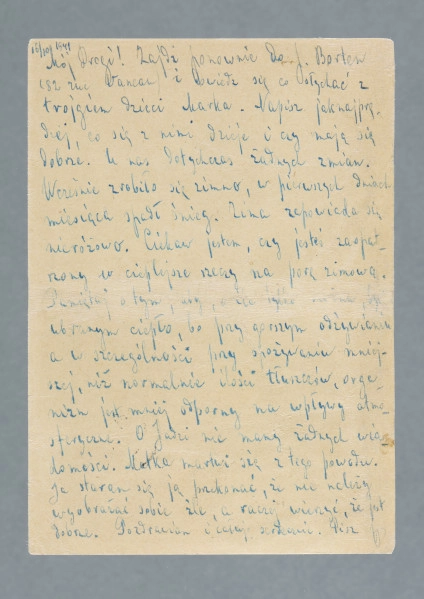 16/10/1941
Mój Drogi! Zajdź ponownie do J. Borten
(82 rue) i dowiedz się co słychać z
trojgiem dzieci Marka. Napisz jaknajprę-
dzej, co się z nimi dzieje i czy mają się
dobrze. U nas dotychczas żadnych zmian.
Wcześnie zrobiło się zimno, w pierwszych dniach
miesiąca spadł śnieg. Zima zapowiada się
nieróżowo. Ciekaw jestem, czy jesteś zaopa-
trzony w cieplejsze rzeczy na porę zimową.
Pamiętaj o tym, aby, o ile
ubranym ciepło, bo przy gorszym odżywianiu
a w szczególności przy spożywaniu mniej-
szej, niż normalnie ilości tłuszczów, orga-
nizm jest mniej odporny na wpływy atmo-
sferyczne. O Jadzi nie mamy żadnych wia-
domości. Matka martwi się z tego powodu.
Ja staram się ją przekonać, że nie należy
wyobrażać sobie źle, a raczej wierzyć, że jest
dobrze. Pozdrawiam i całuję serdecznie. Pisz